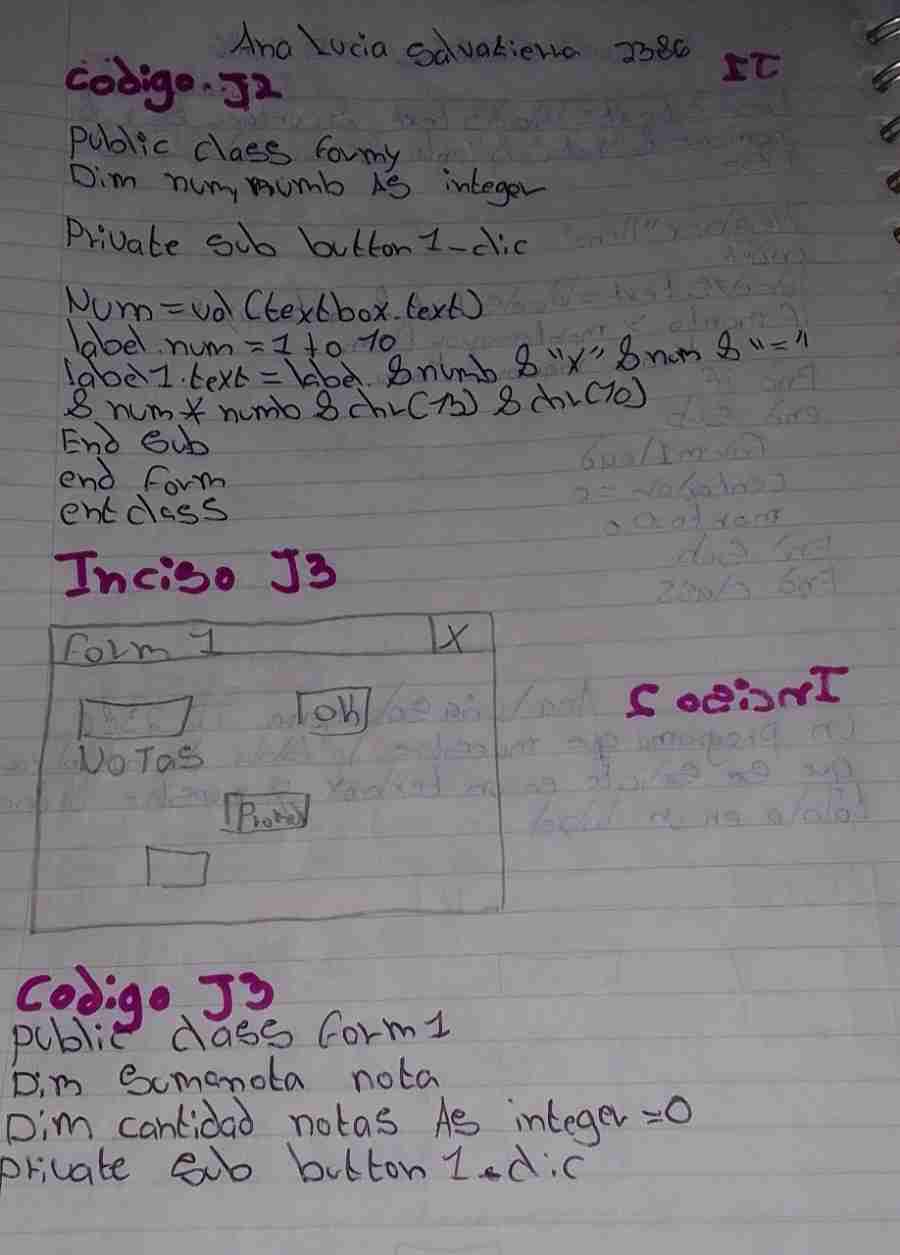 Ana Lucia Salvatierra 2386
IT
Codigo. J2
Public class formy
Dim num, numb As integer
Private sub button 1_clic
Num = val (textbox.text)
label.num = 1 to 10
label 1.text = label & numb & "x" & num & "="
& num * numb & chr (13) & chr (10)
End Sub
end form
ent class
Inciso J3
Form 1 X
OK
NoTas
Inciso 2
Codigo J3
public class form 1
Dim Sumanota nota
Dim cantidad notas As integer = 0
private sub button 1_clic